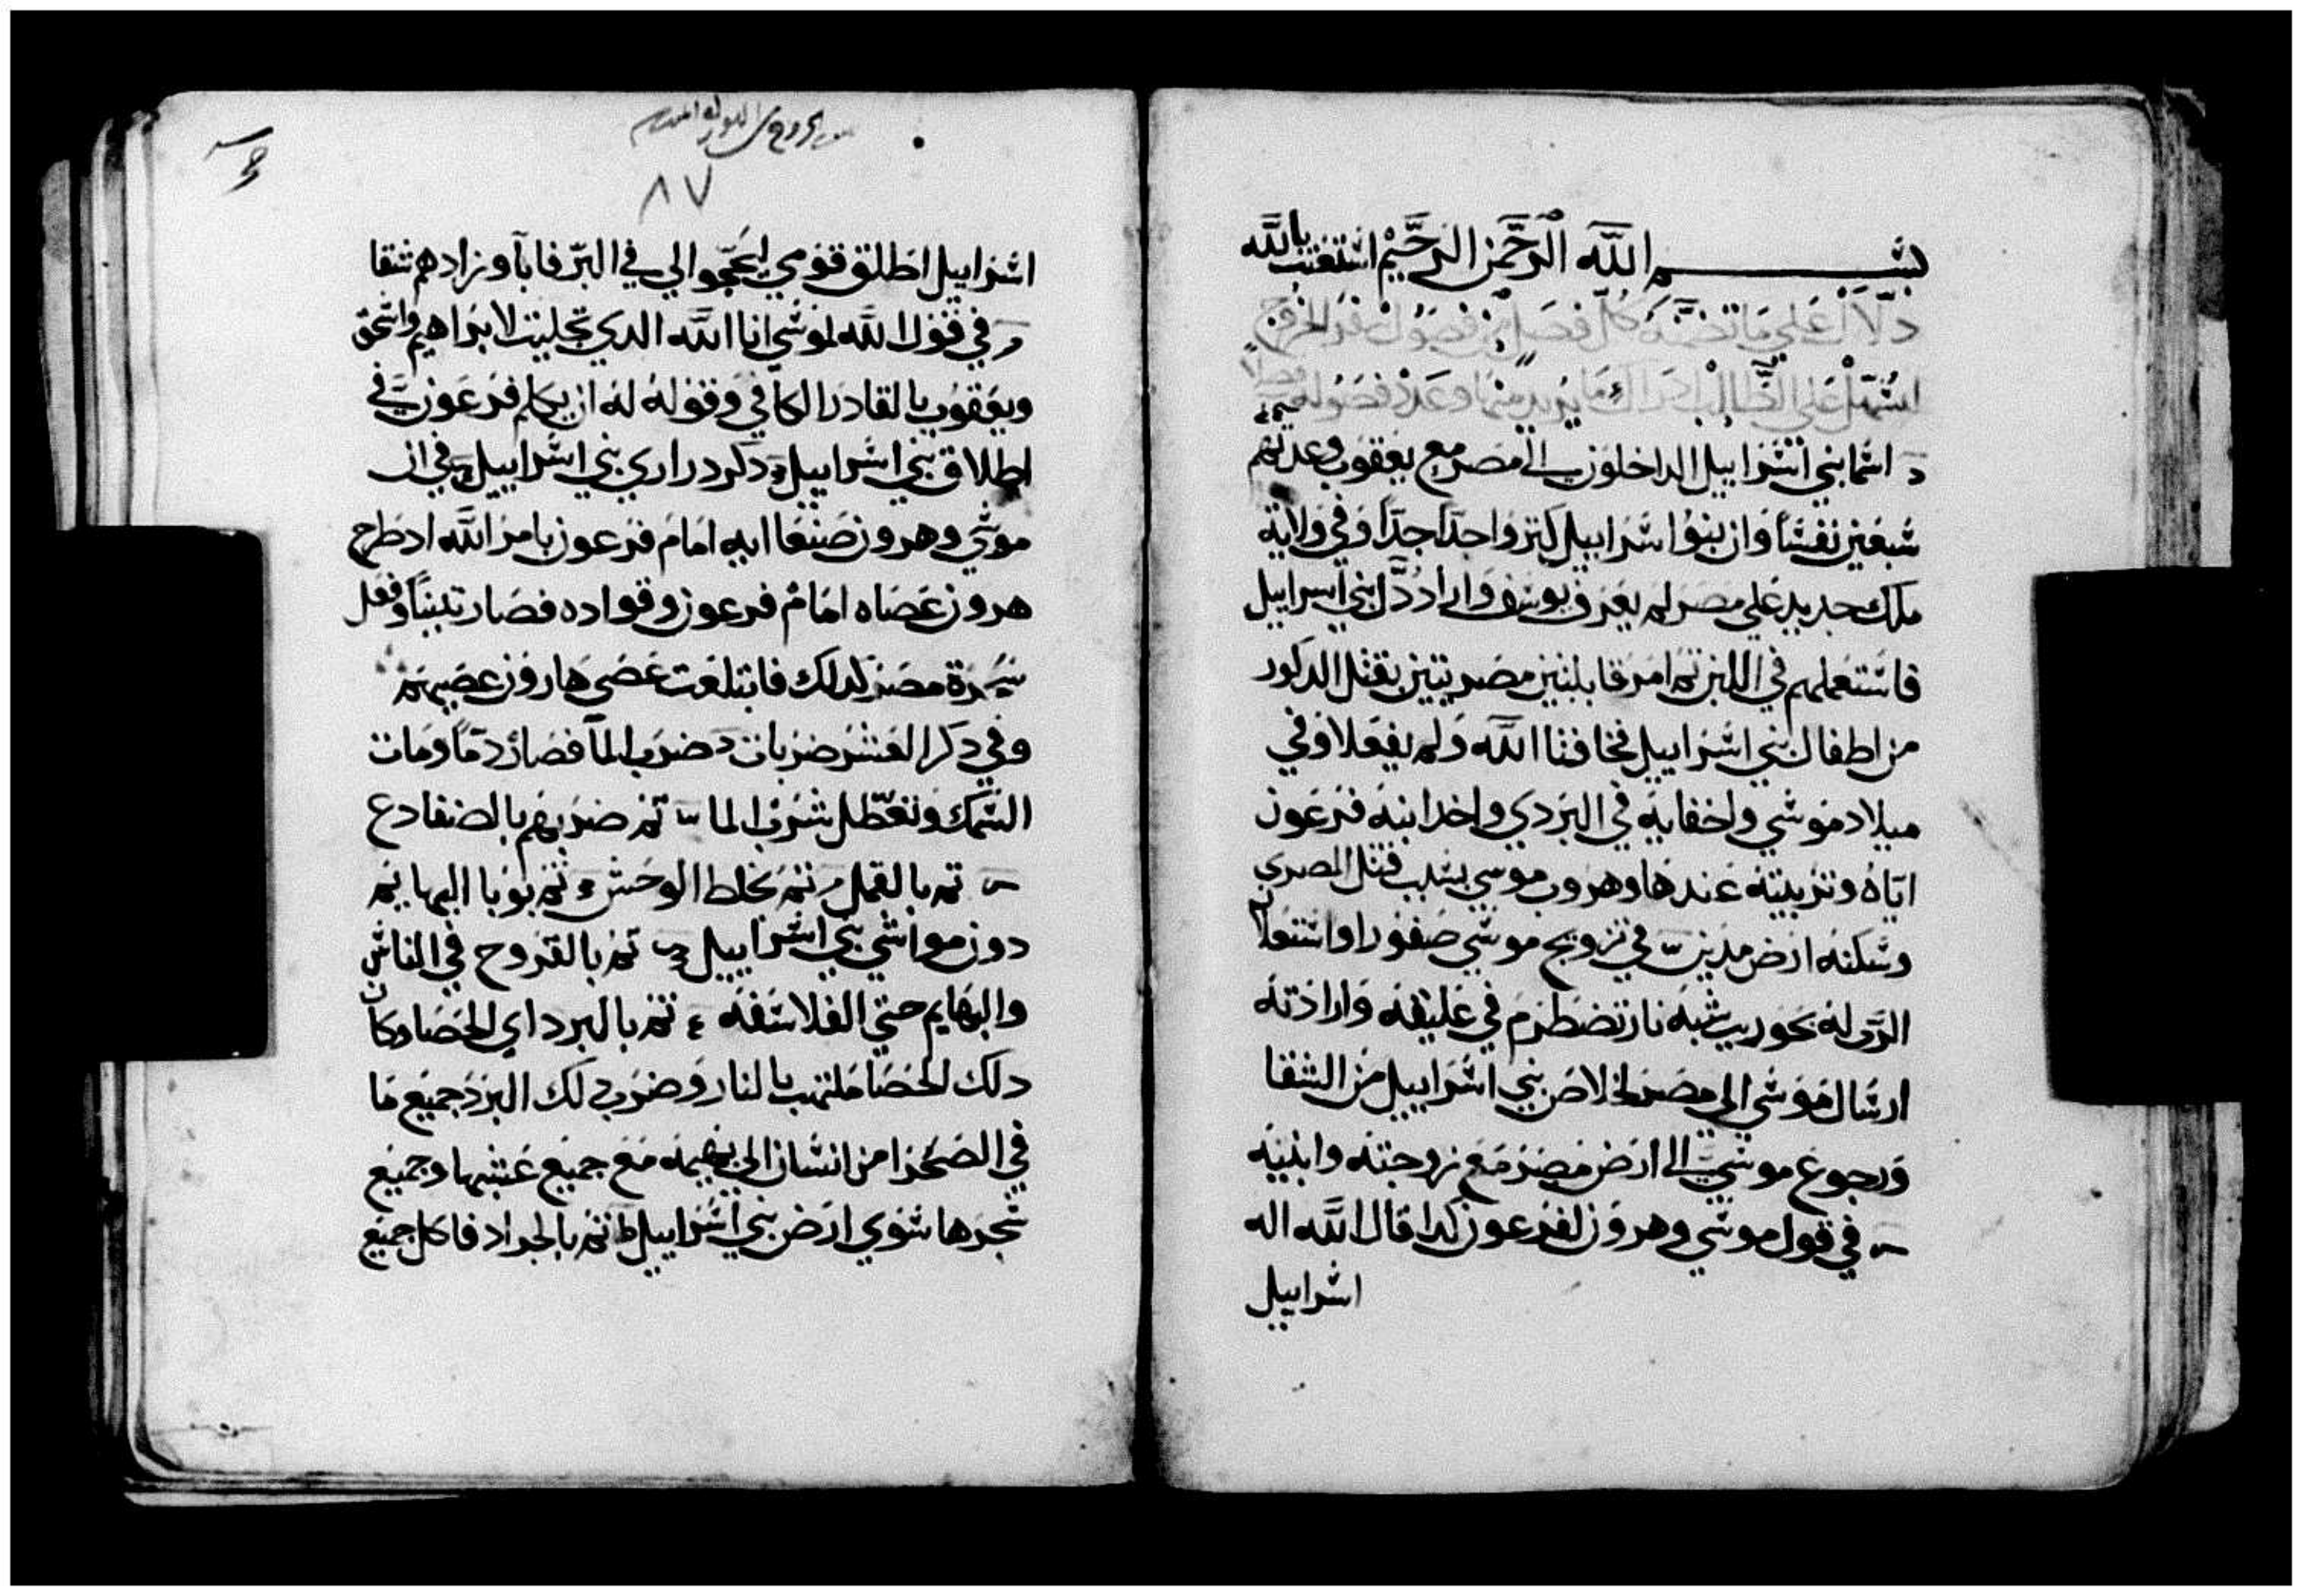 بسم الله الرحمن الرحيم استعنت بالله
دلال علي ما تضمنه كل فصل من فصول سفر الخروج
علي الطالب ادراك ما يريد منها وعدد فصوله
اسما بني اسراييل الداخلون الي مصر مع يعقوب وعدتهم
سبعين نفسًا وان بنوا اسراييل كتروا جدًا جدًا وفي ولاية
ملك جديد علي مصر لم يعرف يوسف واراد دل بني اسراييل
فاستعملهم في اللبن تم امر قابلتين مصريتين بقتل الدكور
من اطفال بني اسراييل فخافتا الله ولم يفعلا وفي
ميلاد موسي واخفايه في البردي واخد ابنة فرعون
اياه وتربيته عندها وهروب موسي بسبب قتل المصري
وسكنه ارض مدين في تزويج موسي صفورا واستعلان
الرب له بحوريب شبه نار تضطرم في عليقه وارادته
ارسال موسي الي مصر لخلاص بني اسراييل من الشقا
ورجوع موسي الي ارض مصر مع زوجته وابنيه
في قول موسي وهرون لفرعون كدا قال الله اله
اسراييل
٨٧
اسراييل اطلق قومي ليحجوا لي في البر فابآ وزادهم شقا
وفي قول الله لموسي انا الله الدي تجليت لابراهيم واسحق
ويعقوب بالقادر الكافي وقوله له ان يكلم فرعون في
اطلاق بني اسراييل ودكر دراري بني اسراييل في ان
موسي وهرون صنعا ايه امام فرعون بامر الله اد طرح
هرون عصاه امام فرعون وقواده فصار تنينًا وفعل
سحرة مصر كدلك فابتلعت عصي هارون عصيهم
وفي دكر العشر ضربات ضرب المآ فصار دمًا ومات
السمك وتعطل شرب الما تم ضربهم بالضفادع
تم بالقمل تم بخلط الوحش تم بوبا البهايم
دون مواشي بني اسراييل تم بالقروح في الناس
والبهايم حتي الفلاسفه تم بالبرد اي الحصا وكان
دلك الحصا ملتهب بالنار وضرب دلك البرد جميع ما
في الصحرا من انسان الي بهيمه مع جميع عشبها وجميع
شجرها سوي ارض بني اسراييل تم بالجراد فاكل جميع